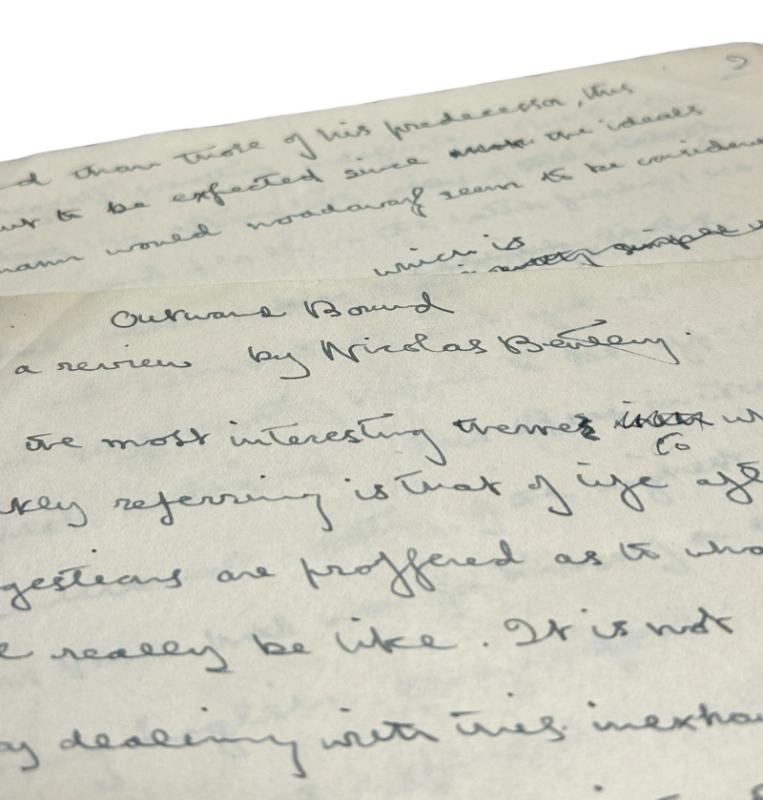 2
d than those of his predecessor, this
but to be expected since the ideals
mann would nowadays seem to be consider
which is
simple
Outward Bound
a review by Nicolas Bentley.
the most interesting themes to wh
kly referring is that of life aft
gestions are proffered as to wha
e really be like. It is not
ay dealing with this inexhau